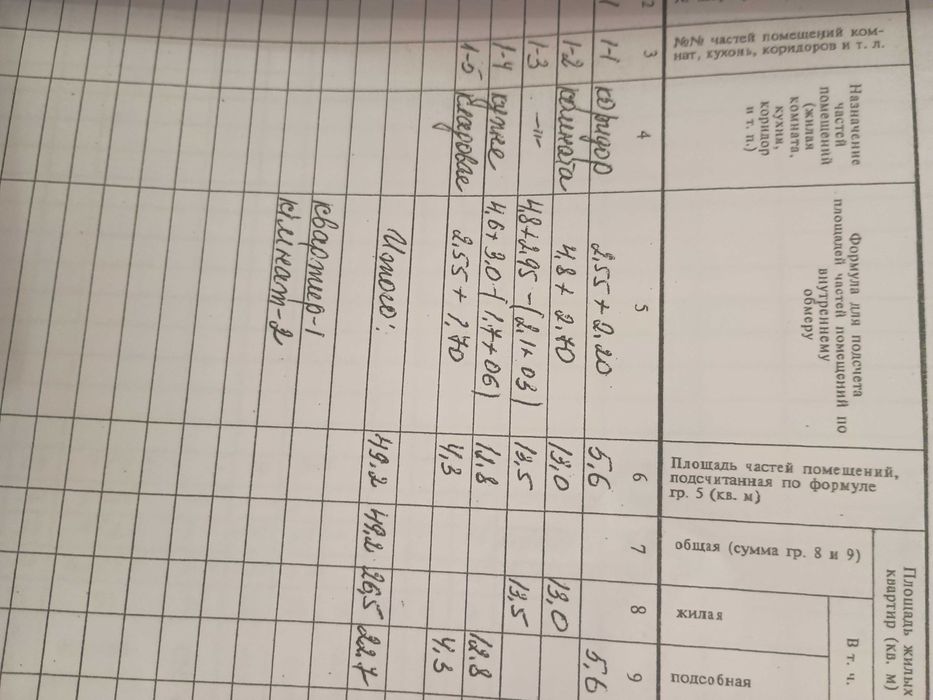 №№ частей помещений ком-
нат, кухонь, коридоров и т. л.
Назначение
частей
помещений
(жилая
комната,
кухня,
коридор
и т. п.)
Формула для подсчета
площадей частей помещений по
внутреннему
обмеру
Площадь частей помещений,
подсчитанная по формуле
гр. 5 (кв. м)
Площадь жилых
квартир (кв. м)
общая (сумма гр. 8 и 9)
В т. ч.
жилая
подсобная
2 3 4 5 6 7 8 9
1 1-1 коридор 2,55 + 2,20 5,6 5,6
1-2 комната 4,8 + 2,70 13,0 13,0
1-3 -"- 4,8 + 2,95 - (2,1 + 03) 13,5 13,5
1-4 кухне 4,6 + 3,0 - (1,7 + 06) 12,8 12.8
1-5 кладовые 2,55 + 1,70 4,3 4,3
Итого: 49,2 49,2 26,5 22.7
квартир-1
кімнат-2